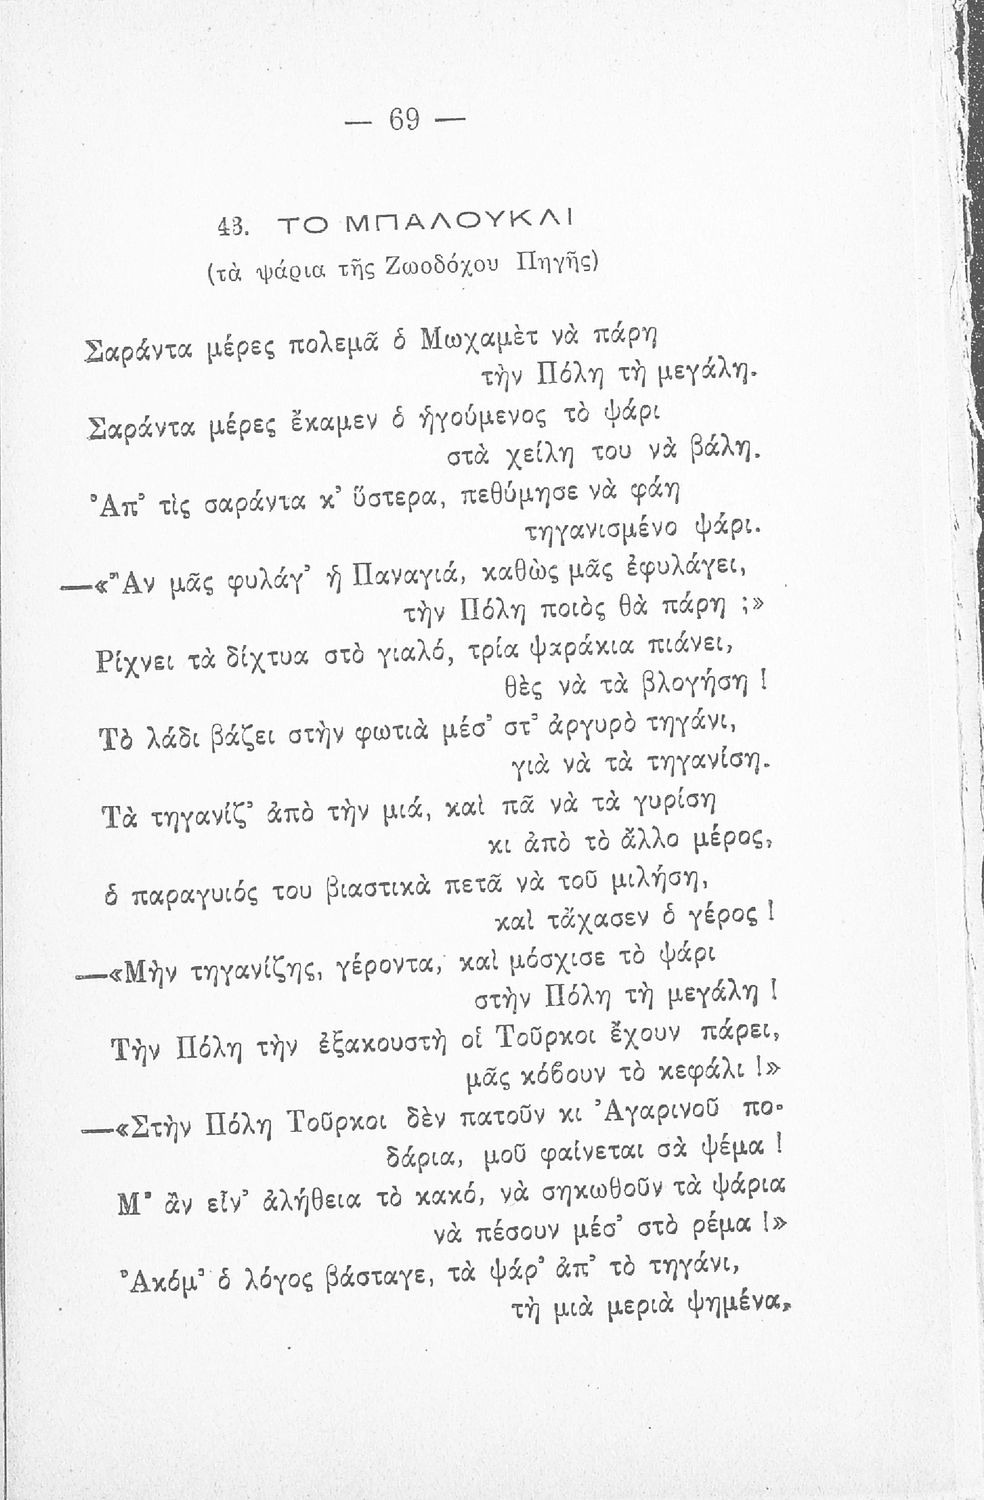 — 69 —
43. ΤΟ ΜΠΑΛΟΥΚΛΙ
(τὰ ψάρια τῆς Ζωοδόχου Πηγῆς)
Σαράντα μέρες πολεμᾶ ὁ Μωχαμὲτ νὰ πάρη
τὴν Πόλη τὴ μεγάλη.
Σαράντα μέρες ἔκαμεν ὁ ἡγούμενος τὸ ψάρι
στὰ χείλη του νὰ βάλη.
Ἀπ' τὶς σαράντα κ' ὕστερα, πεθύμησε νὰ φάη
τηγανισμένο ψάρι.
—«Ἂν μᾶς φυλάγ' ἡ Παναγιά, καθὼς μᾶς ἐφυλάγει,
τὴν Πόλη ποιὸς θὰ πάρη ;»
Ρίχνει τὰ δίχτυα στὸ γιαλό, τρία ψαράκια πιάνει,
θὲς νὰ τὰ βλογήση !
Τὸ λάδι βάζει στὴν φωτιὰ μέσ' στ' ἀργυρὸ τηγάνι,
γιὰ νὰ τὰ τηγανίση.
Τὰ τηγανίζ' ἀπὸ τὴν μιά, καὶ πᾶ νὰ τὰ γυρίση
κι ἀπὸ τὸ ἄλλο μέρος,
ὁ παραγυιός του βιαστικὰ πετᾶ νὰ τοῦ μιλήση,
καὶ τἄχασεν ὁ γέρος !
—«Μὴν τηγανίζης, γέροντα, καὶ μόσχισε τὸ ψάρι
στὴν Πόλη τὴ μεγάλη !
Τὴν Πόλη τὴν ἐξακουστὴ οἱ Τοῦρκοι ἔχουν πάρει,
μᾶς κόβουν τὸ κεφάλι !»
—«Στὴν Πόλη Τοῦρκοι δὲν πατοῦν κι Ἀγαρινοῦ πο-
δάρια, μοῦ φαίνεται σὰ ψέμα !
Μ' ἂν εἶν' ἀλήθεια τὸ κακό, νὰ σηκωθοῦν τὰ ψάρια
νὰ πέσουν μέσ' στὸ ρέμα !»
Ἀκόμ' ὁ λόγος βάσταγε, τὰ ψάρ' ἀπ' τὸ τηγάνι,
τὴ μιὰ μεριὰ ψημένα,